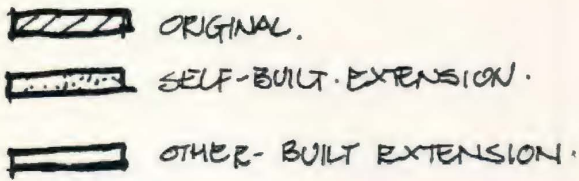 ORIGINAL.
SELF-BUILT. EXTENSION.
OTHER- BUILT EXTENSION.